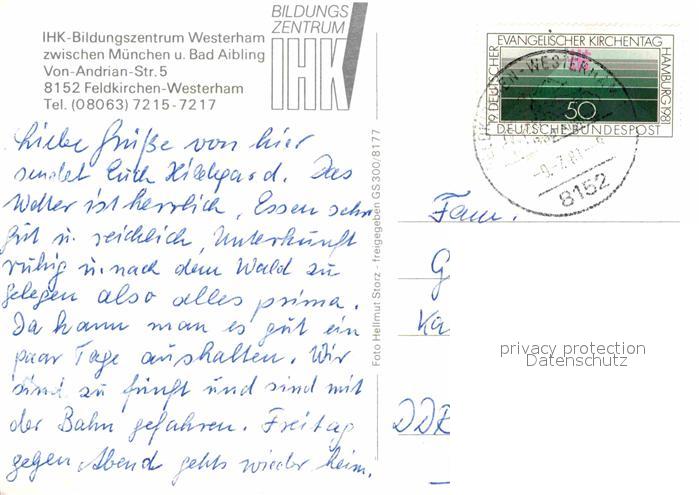 IHK-Bildungszentrum Westerham
zwischen München u. Bad Aibling
Von-Andrian-Str. 5
8152 Feldkirchen-Westerham
Tel. (08063) 7215-7217
BILDUNGS
ZENTRUM
IHK
19. DEUTSCHER EVANGELISCHER KIRCHENTAG HAMBURG 1981
50
DEUTSCHE BUNDESPOST
8152
Liebe Grüße von hier
sendet Euch Hildegard. Das
Wetter ist herrlich, Essen sehr
gut u. reichlich, Unterkunft
ruhig u. nach dem Wald zu
gelegen also alles prima.
Da kann man es gut ein
paar Tage aushalten. Wir
sind zu fünft und sind mit
der Bahn gefahren. Freitag
gegen Abend gehts wieder heim.
Foto Hellmut Storz - freigegeben GS300/8177
Fam.
G
Ka
DDR
privacy protection
Datenschutz